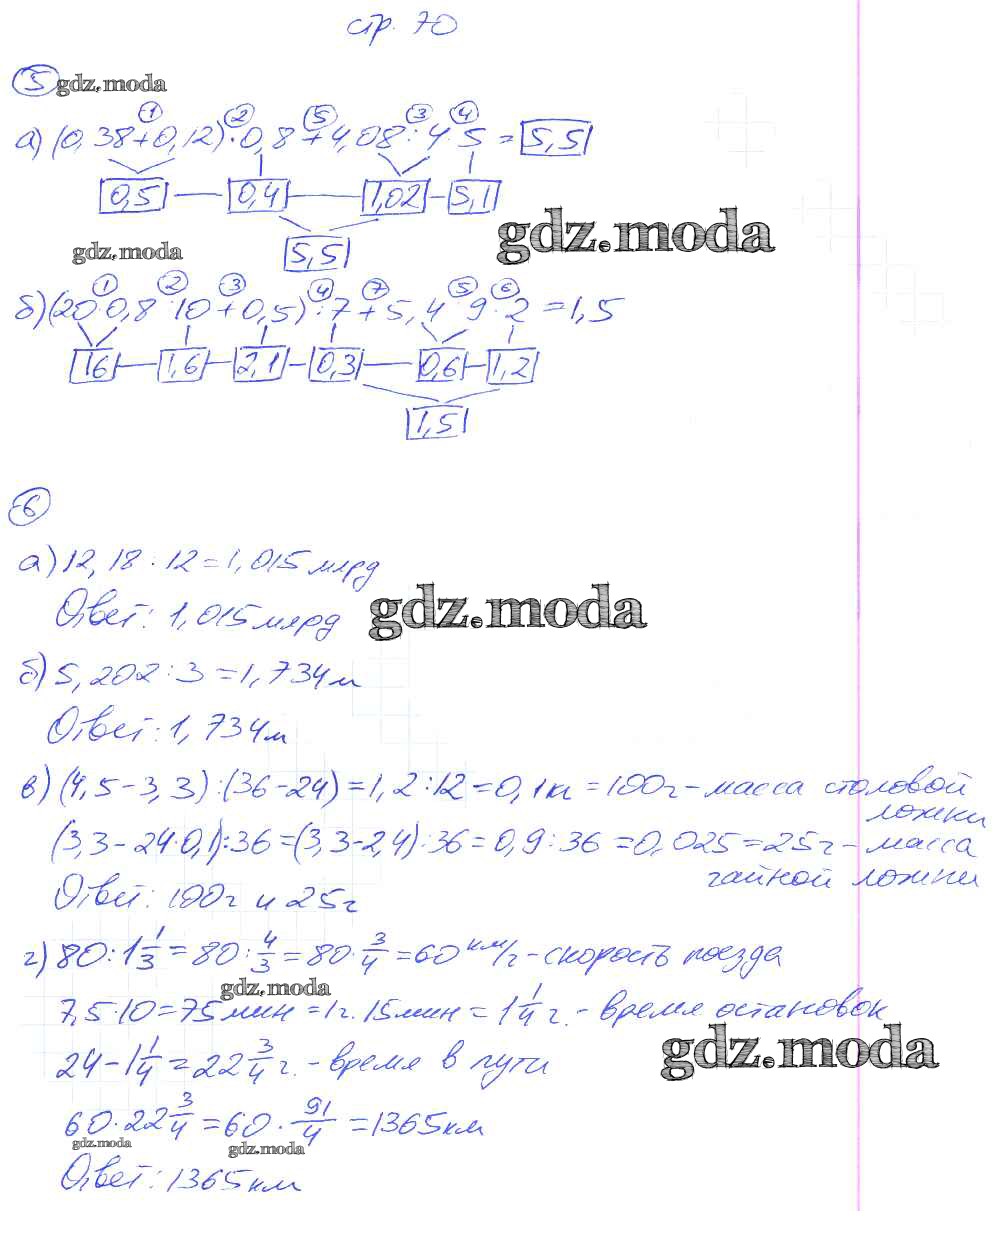 стр. 70
5 gdz.moda
1 2 5 3 4
а) (0,38+0,12)·0,8+4,08:4·5=5,5
0,5 0,4 1,02 5,1
gdz.moda
gdz.moda 5,5
1 2 3 4 7 5 6
б) (20·0,8:10+0,5):7+5,4:9·2=1,5
16 1,6 2,1 0,3 0,6 1,2
1,5
6
а) 12,18:12=1,015 млрд
Ответ: 1,015 млрд gdz.moda
б) 5,202:3=1,734м
Ответ: 1,734м
в) (4,5-3,3):(36-24)=1,2:12=0,1кг=100г-масса столовой
ложки
(3,3-24·0,1):36=(3,3-2,4):36=0,9:36=0,025=25г-масса
чайной ложки
Ответ: 100г и 25г
г) 80:1 1/3=80:4/3=80·3/4=60 км/г-скорость поезда
gdz.moda
7,5·10=75мин=1г.15мин=1 1/4 г.-время остановок
gdz.moda
24-1 1/4=22 3/4 г.-время в пути
60·22 3/4=60·91/4=1365км
gdz.moda gdz.moda
Ответ: 1365км